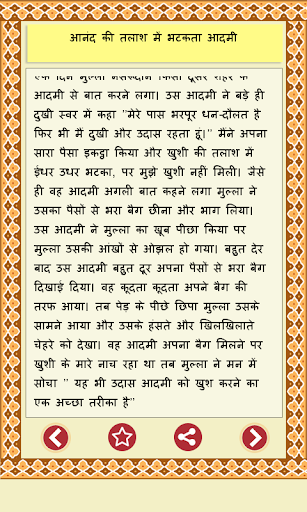 आनंद की तलाश में भटकता आदमी
एक दिन मुल्ला नसरुद्दीन किसी दूसरे शहर के
आदमी से बात करने लगा। उस आदमी ने बड़े ही
दुखी स्वर में कहा "मेरे पास भरपूर धन-दौलत है
फिर भी मैं दुखी और उदास रहता हूं।" मैंने अपना
सारा पैसा इकट्ठा किया और खुशी की तलाश में
इंधर उधर भटका, पर मुझे खुशी नहीं मिली। जैसे
ही वह आदमी अगली बात कहने लगा मुल्ला ने
उसका पैसों से भरा बैग छीना और भाग लिया।
उस आदमी ने मुल्ला का खूब पीछा किया पर
मुल्ला उसकी आंखों से ओझल हो गया। बहुत देर
बाद उस आदमी बहुत दूर अपना पैसों से भरा बैग
दिखाई दिया। वह कूदता कूदता अपने बैग की
तरफ आया। तब पेड़ के पीछे छिपा मुल्ला उसके
सामने आया और उसके हंसते और खिलखिलाते
चेहरे को देखा। वह आदमी अपना बैग मिलने पर
खुशी के मारे नाच रहा था तब मुल्ला ने मन में
सोचा " यह भी उदास आदमी को खुश करने का
एक अच्छा तरीका है"